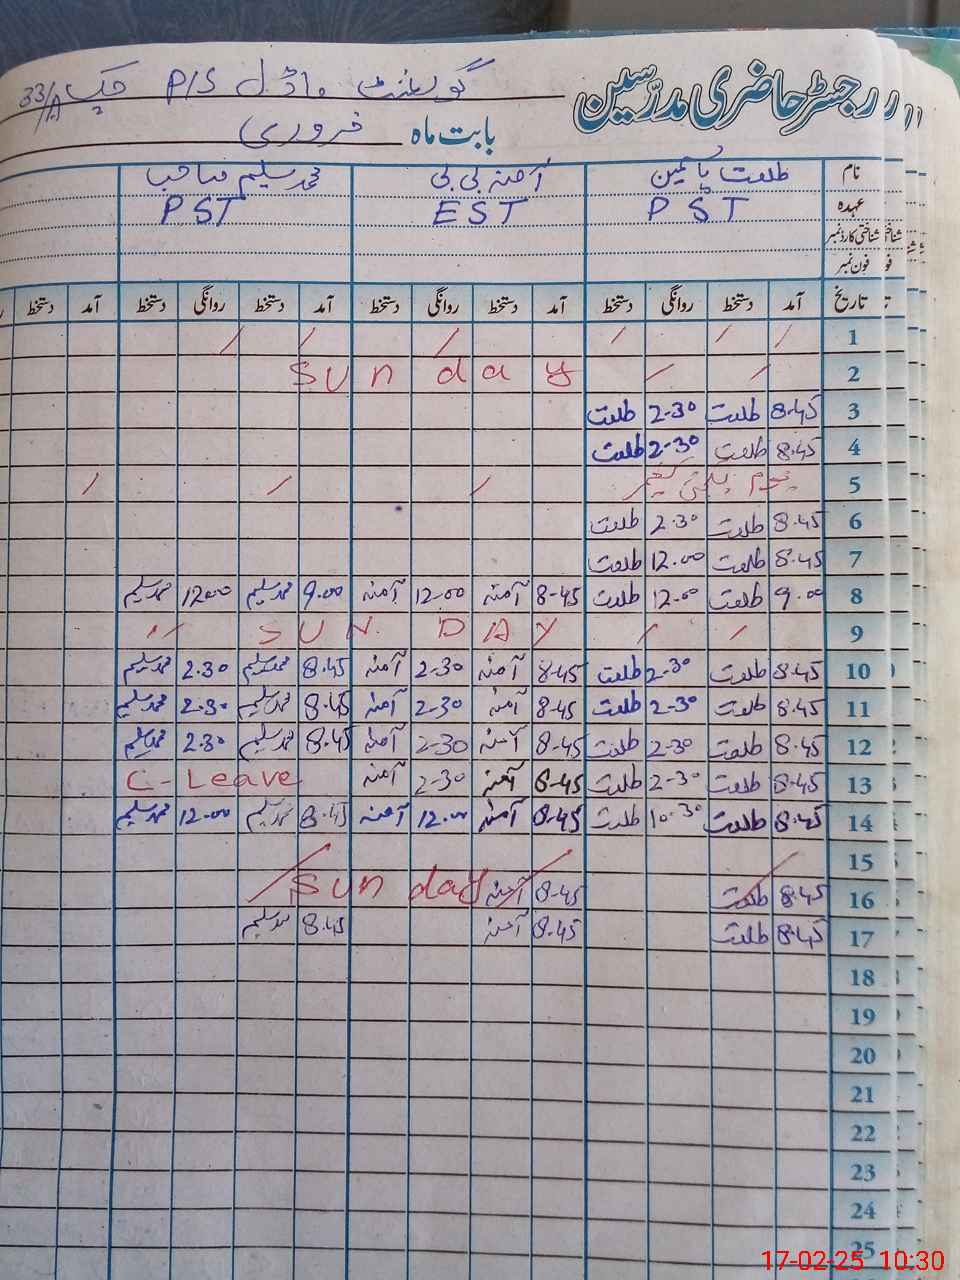 رجسٹر حاضری مدرسین گورنمنٹ ماڈل P/S چک 33/A
بابت ماہ فروری
نام طلعت یاسمین آمنہ بی بی محمد سلیم صاحب
عہدہ PST EST PST
شناختی کارڈ نمبر
فون نمبر
تاریخ آمد دستخط روانگی دستخط آمد دستخط روانگی دستخط آمد دستخط روانگی دستخط آمد دستخط
1
2 Sunday
3 8.45 طلعت 2-30 طلعت
4 8.45 طلعت 2-30 طلعت
5 یوم یکجہتی کشمیر
6 8.45 طلعت 2.30 طلعت
7 8.45 طلعت 12.00 طلعت
8 9.00 طلعت 12.00 طلعت 8-45 آمنہ 12.00 آمنہ 9.00 محمد سلیم 12.00 محمد سلیم
9 SUN DAY
10 8.45 طلعت 2-30 طلعت 8-45 آمنہ 2-30 آمنہ 8.45 محمد سلیم 2.30 محمد سلیم
11 8.45 طلعت 2-30 طلعت 8-45 آمنہ 2-30 آمنہ 8.45 محمد سلیم 2.30 محمد سلیم
12 8.45 طلعت 2-30 طلعت 8-45 آمنہ 2-30 آمنہ 8.45 محمد سلیم 2.30 محمد سلیم
13 8.45 طلعت 2-30 طلعت 8-45 آمنہ 2-30 آمنہ C-Leave
14 8.45 طلعت 10.30 طلعت 8-45 آمنہ 12.00 آمنہ 8.45 محمد سلیم 12.00 محمد سلیم
15
16 8.45 طلعت 8-45 آمنہ Sunday
17 8.45 طلعت 8.45 آمنہ 8.45 محمد سلیم
18
19
20
21
22
23
24
25
17-02-25 10:30